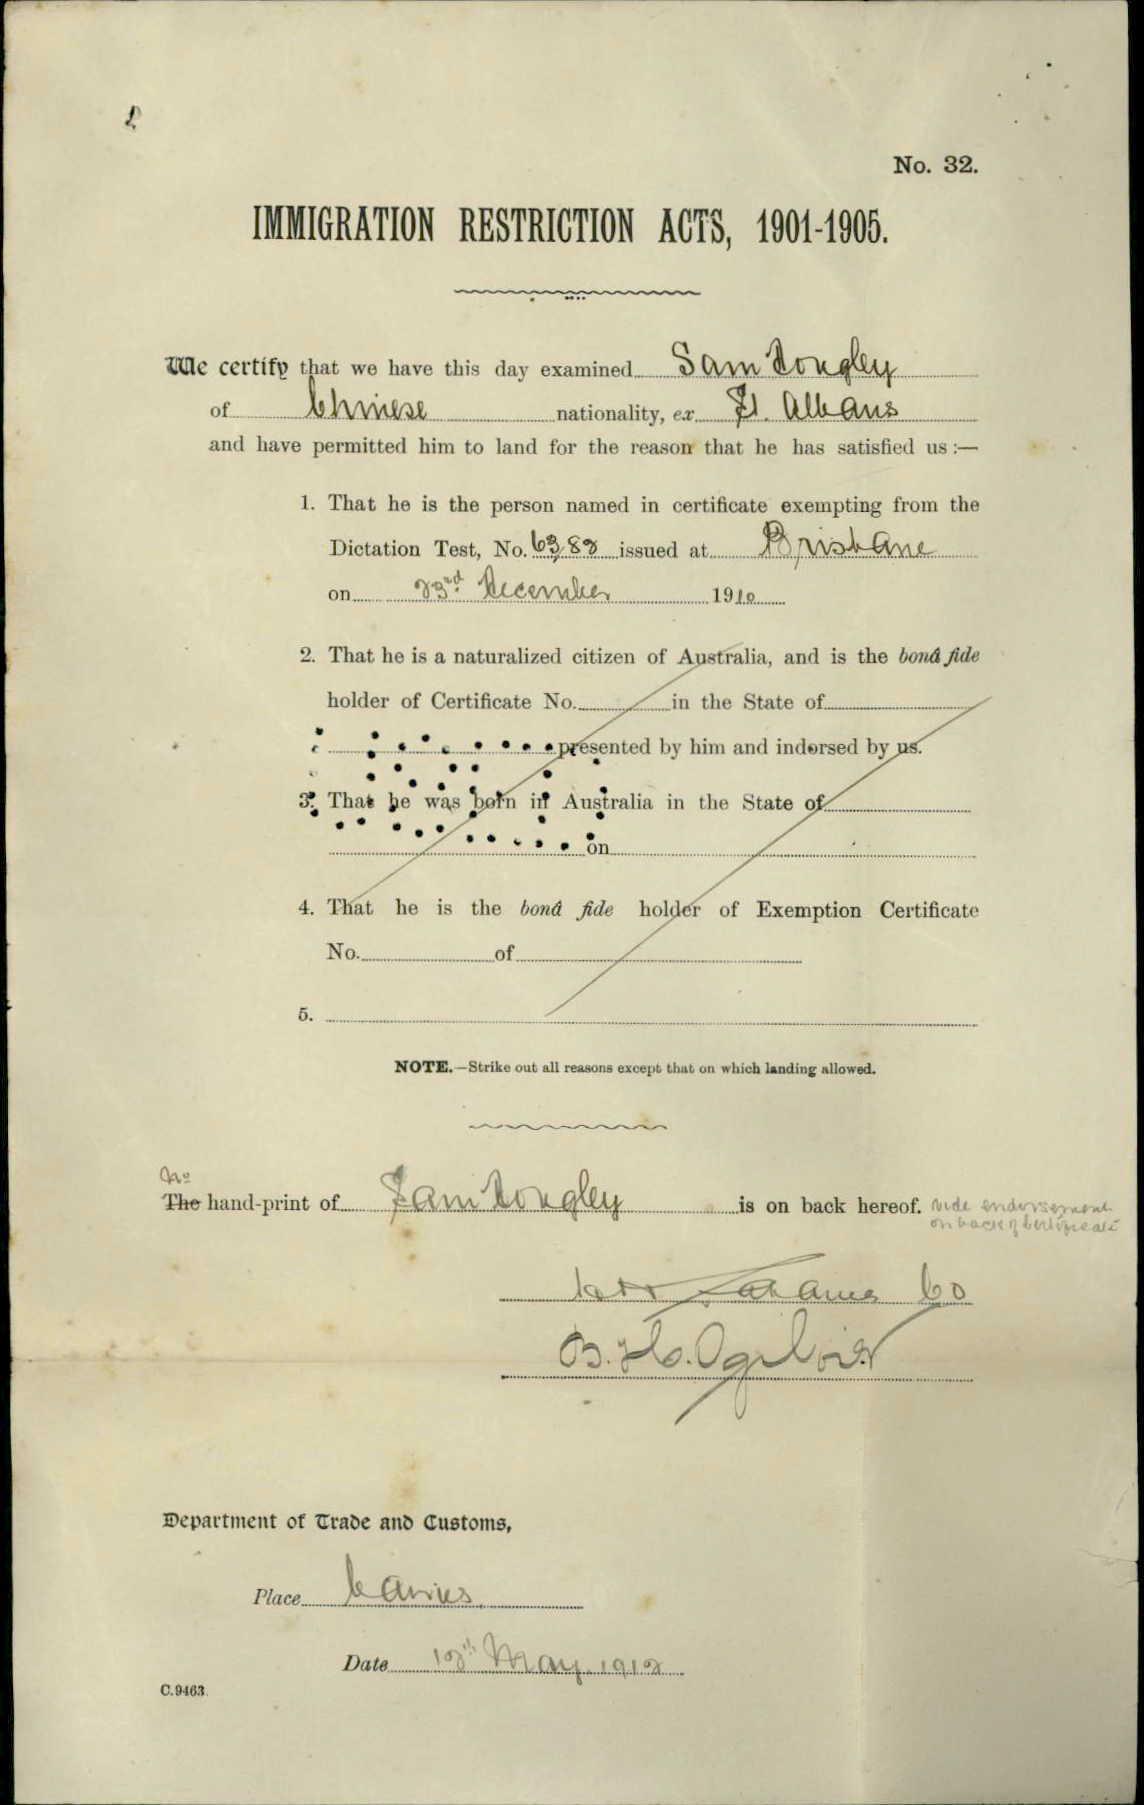 No. 32.
IMMIGRATION RESTRICTION ACTS, 1901-1905.
We certify that we have this day examined Sam Kongley
of Chinese nationality, ex St. Albans
and have permitted him to land for the reason that he has satisfied us:—
1. That he is the person named in certificate exempting from the
Dictation Test, No. issued at Brisbane
on 23rd December 1910
2. That he is a naturalized citizen of Australia, and is the bonâ fide
holder of Certificate No. in the State of
presented by him and indorsed by us.
3. That he was born in Australia in the State of
on
4. That he is the bonâ fide holder of Exemption Certificate
No. of
5.
NOTE.—Strike out all reasons except that on which landing allowed.
No
The hand-print of Sam Kongley is on back hereof. vide endorsement
on back of Certificate
B. H. Ogilvie
Department of Trade and Customs,
Place Cairns.
Date 12th May 1912
C.9463.